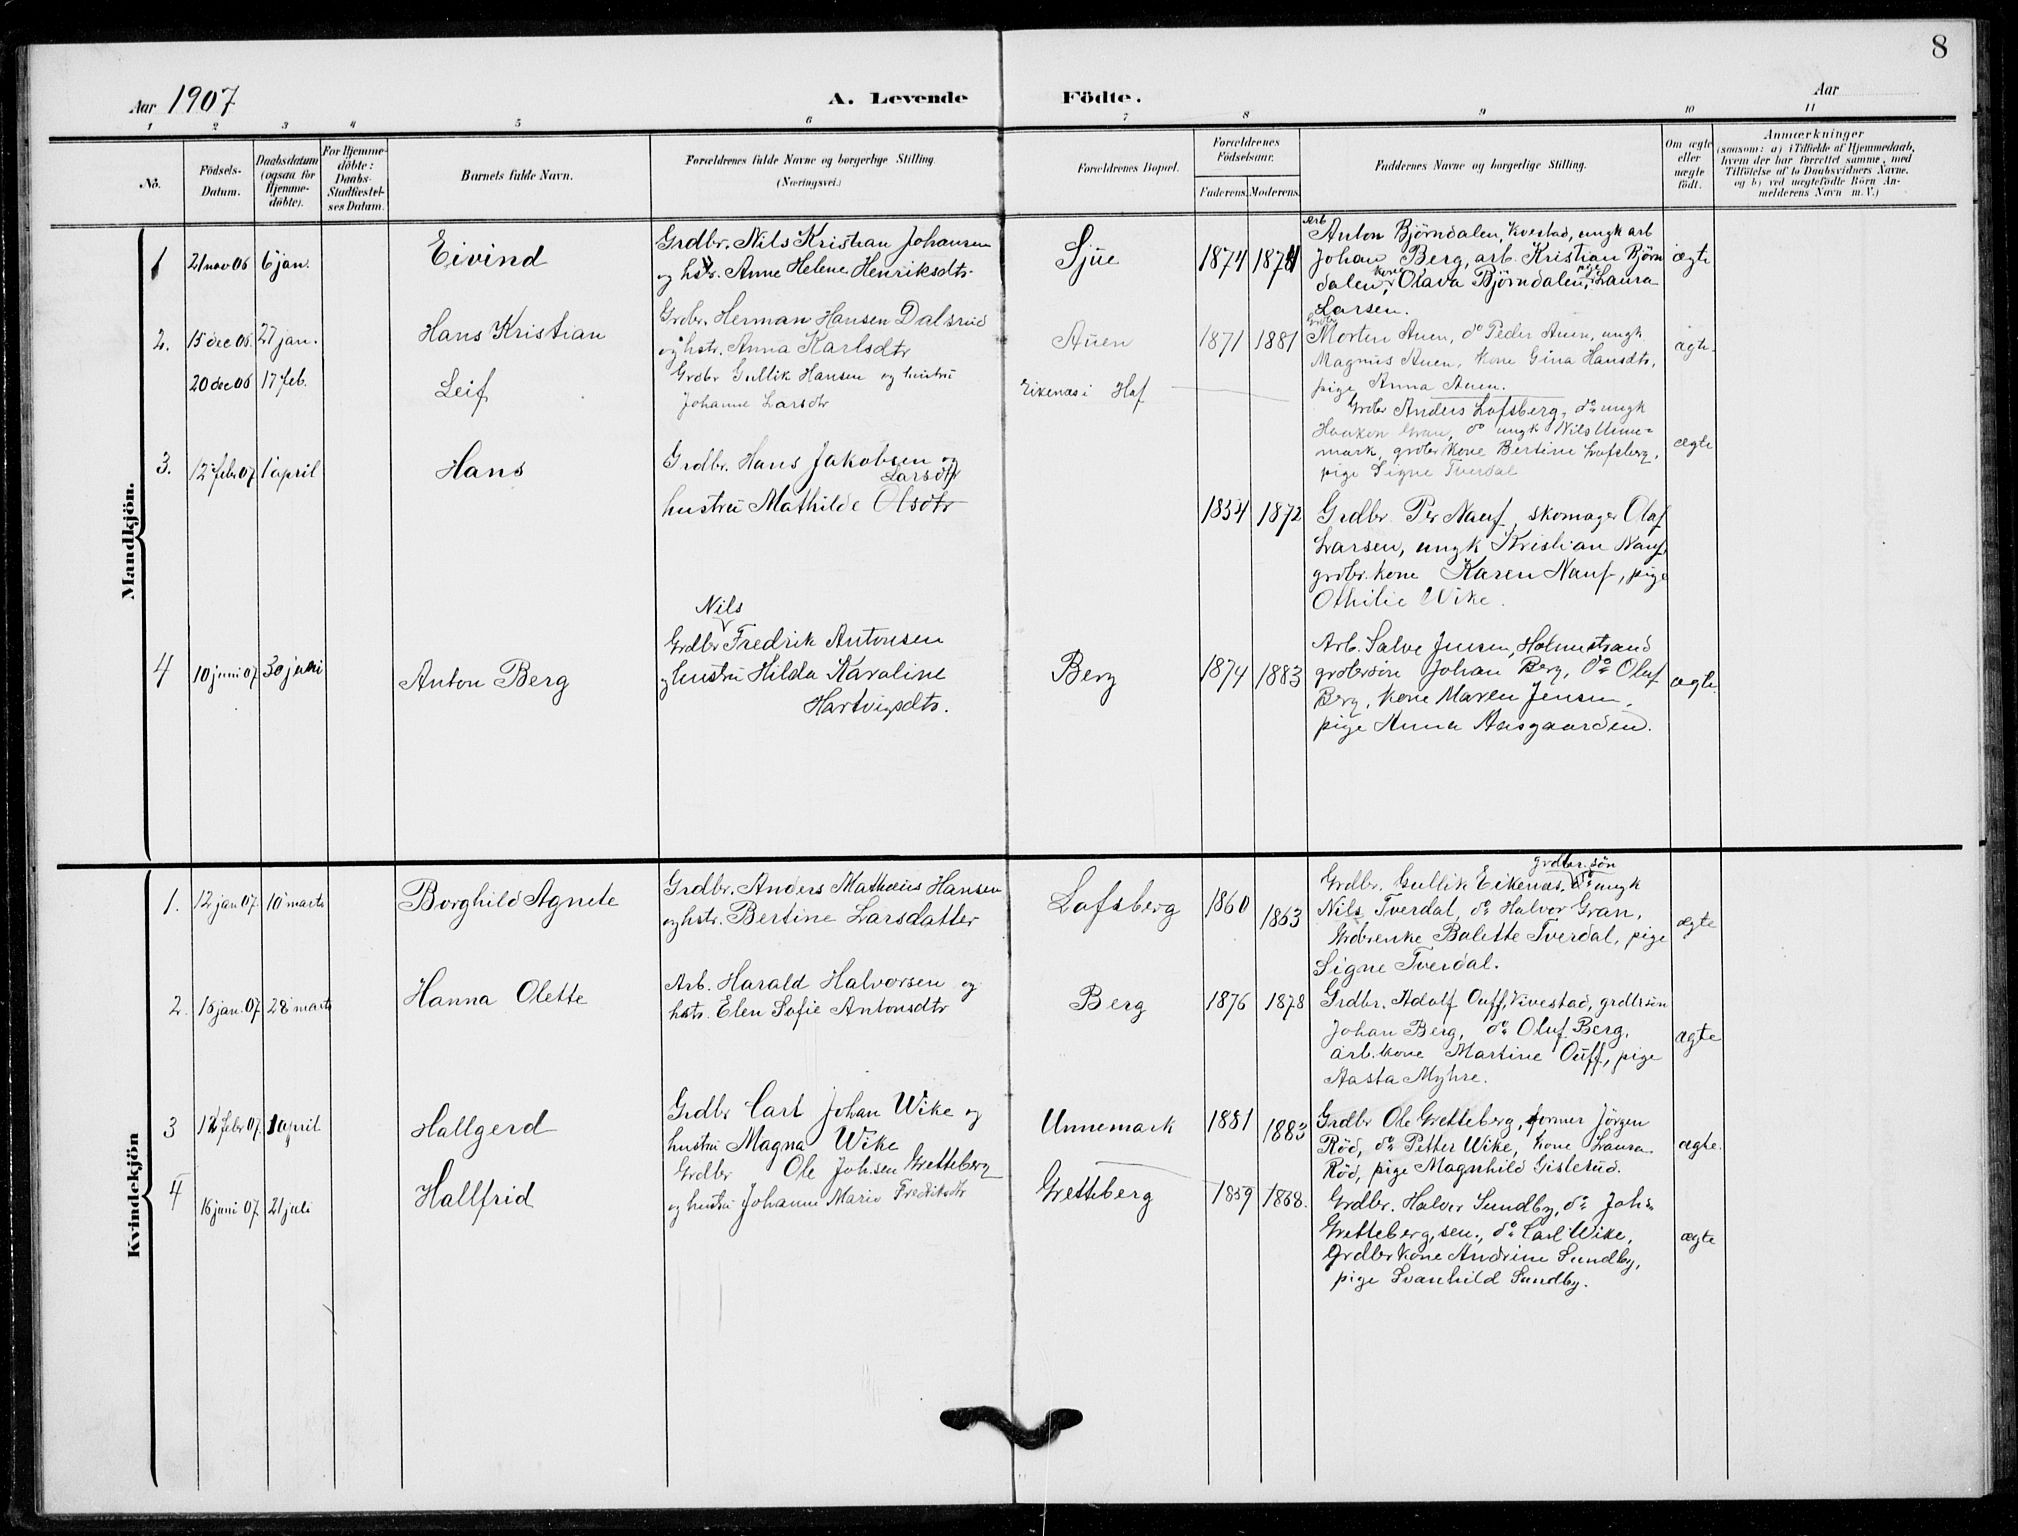 8
Aar 1907
A. Levende Födte.
Aar
1 2 3 4 5 6 7 8 9 10 11
No.
Födsels-
Datum.
Daabsdatum
(ogsaa for
Hjemme-
döbte).
For Hjemme-
döbte:
Daabs-
Stadfæstel-
ses Datum.
Barnets fulde Navn.
Forældrenes fulde Navne og borgerlige Stilling.
(Næringsvei.)
Forældrenes Bopæl.
Forældrenes
Födselsaar.
Faderens. Moderens.
Faddernes Navne og borgerlige Stilling.
Om ægte
eller
uægte
født.
Anmærkninger
(saasom: a) i Tilfælde af Hjemmedaab,
hvem der har forrettet samme, med
Tilföielse af to Daabsvidners Navne,
og b) ved uægtefödte Börn An-
melderens Navn m. V.)
Mandkjön.
1 21 nov 06 6 jan. Eivind
Grdbr. Nils Kristian Johansen
og hstr. Anne Helene Henriksdtr.
Sjue 1874 1874
Arb
Anton Bjørndalen, Kvestad, ungk arb
Johan Berg, arb. Kristian Bjørn
dalen, kone Olava Bjørndalen, pige Laura
Larsen.
ægte
2. 15 dec 06. 27 jan. Hans Kristian
Grdbr. Herman Hansen Dalsrud
og hstr. Anna Karlsdtr
Auen 1871 1881
Grdbr
Morten Auen, do Peder Auen, ungk
Magnus Auen, kone Gina Hansdtr,
pige Anna Auen.
ægte.
20 dec 06 17 feb. Leif
Grdbr Gullik Hansen og hustru
Johanne Larsdtr
Eikenæs i Hof
Grdbr Anders Lofsberg, do ungk
Haaken Gran, do ungk Nils Unne=
mark, grdbr kone Bertine Lofsberg,
pige Signe Tverdal
ægte
3. 12 febr 07 1 april Hans
Grdbr. Hans Jakobsen og
Larsdtr
hustru Mathilde Olsdtr
1854 1872
Grdbr Per Nauf, skomager Olaf
Larsen, ungk Kristian Nauf,
grdbr. kone Karen Nauf, pige
Othilie Wike.
4 10 juni 07. 30 juni Anton Berg
Nils
Grdbr Fredrik Antonsen
og hustru Hilda Karoline
Hartvigsdtr.
Berg 1874 1883
Arb. Salve Jensen, Holmestrand
grdbrsøn Johan Berg, do Oluf
Berg, kone Maren Jensen,
pige Anna Aasgaarden.
ægte.
Kvindekjön
1. 12 jan 07. 10 marts Borghild Agnete
Grdbr. Anders Mathæus Hansen
og hstr. Bertine Larsdatter
Lofsberg 1860 1863
grdbr. søn
Grdbr. Gullik Eikenæs, do ungk
Nils Tverdal, do Halvor Gran,
Grdbrenke Balette Tverdal, pige
Signe Tverdal.
ægte
2. 15 jan. 07. 28 marts Hanna Olette
Arb. Harald Halvorsen og
hstr. Elen Sofie Antonsdtr
Berg 1876 1878
Grdbr. Adolf Ouff, Vivestad, grdbrsøn
Johan Berg, do Oluf Berg,
arb. kone Martine Ouff, pige
Aasta Myhre.
ægte
3 12 febr 07. 1 april. Hallgerd
Grdbr Carl Johan Wike og
hustru Magna Wike
Unnemark 1881 1883
Grdbr Ole Gretteberg, former Jørgen
Rød, do Petter Wike, kone Laura
Rød, pige Magnhild Gislerud.
ægte.
4 16 juni 07. 21 juli Hallfrid
Grdbr Ole Johsen Gretteberg
og hustru Johanne Marie Fredriksdtr
Gretteberg 1859 1868.
Grdbr. Halvor Sundby, do Johs
Gretteberg, sen., do Carl Wike,
Grdbrkone Andrine Sundby,
pige Svanhild Sundby.
ægte